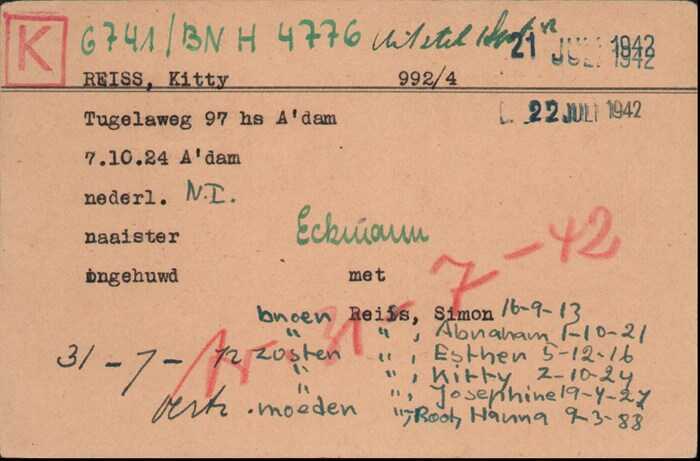 K 6741/BN H 4776 Uitstel 21 JULI 1942
REISS, Kitty 992/4
Tugelaweg 97 hs A'dam 22 JULI 1942
7.10.24 A'dam
nederl. N.I.
naaister Eckmann
ongehuwd met
31-7-42
broer Reiss, Simon 16-9-13
" " , Abraham 1-10-21
31-7-42 zuster " , Esther 5-12-16
" " , Kitty 2-10-24
" " , Josephine 19-4-27
vertr. moeder " , Hanna 9-3-88